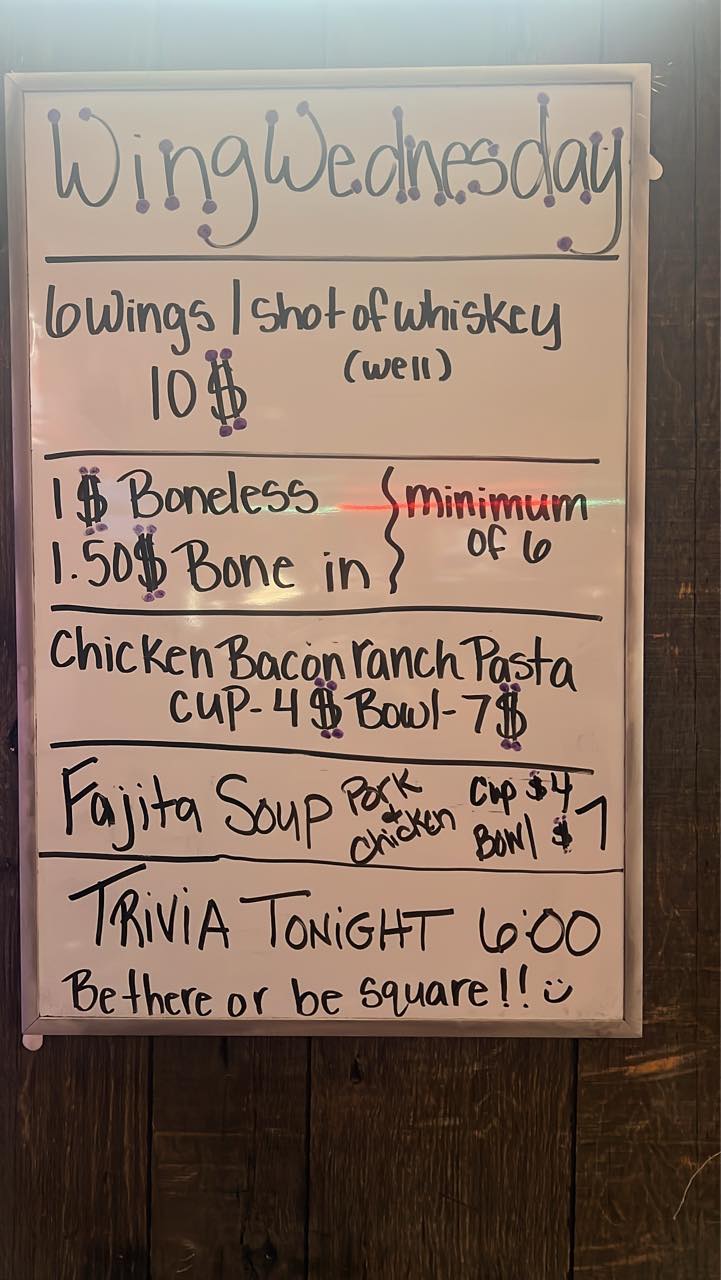 Wing Wednesday
6 Wings / shot of whiskey
(well)
10$
1$ Boneless } minimum
1.50$ Bone in of 6
Chicken Bacon ranch Pasta
CUP-4$ Bowl-7$
Fajita Soup Pork + chicken Cup $4
Bowl $7
TRiViA TONiGHT 6:00
Be there or be square!! :)